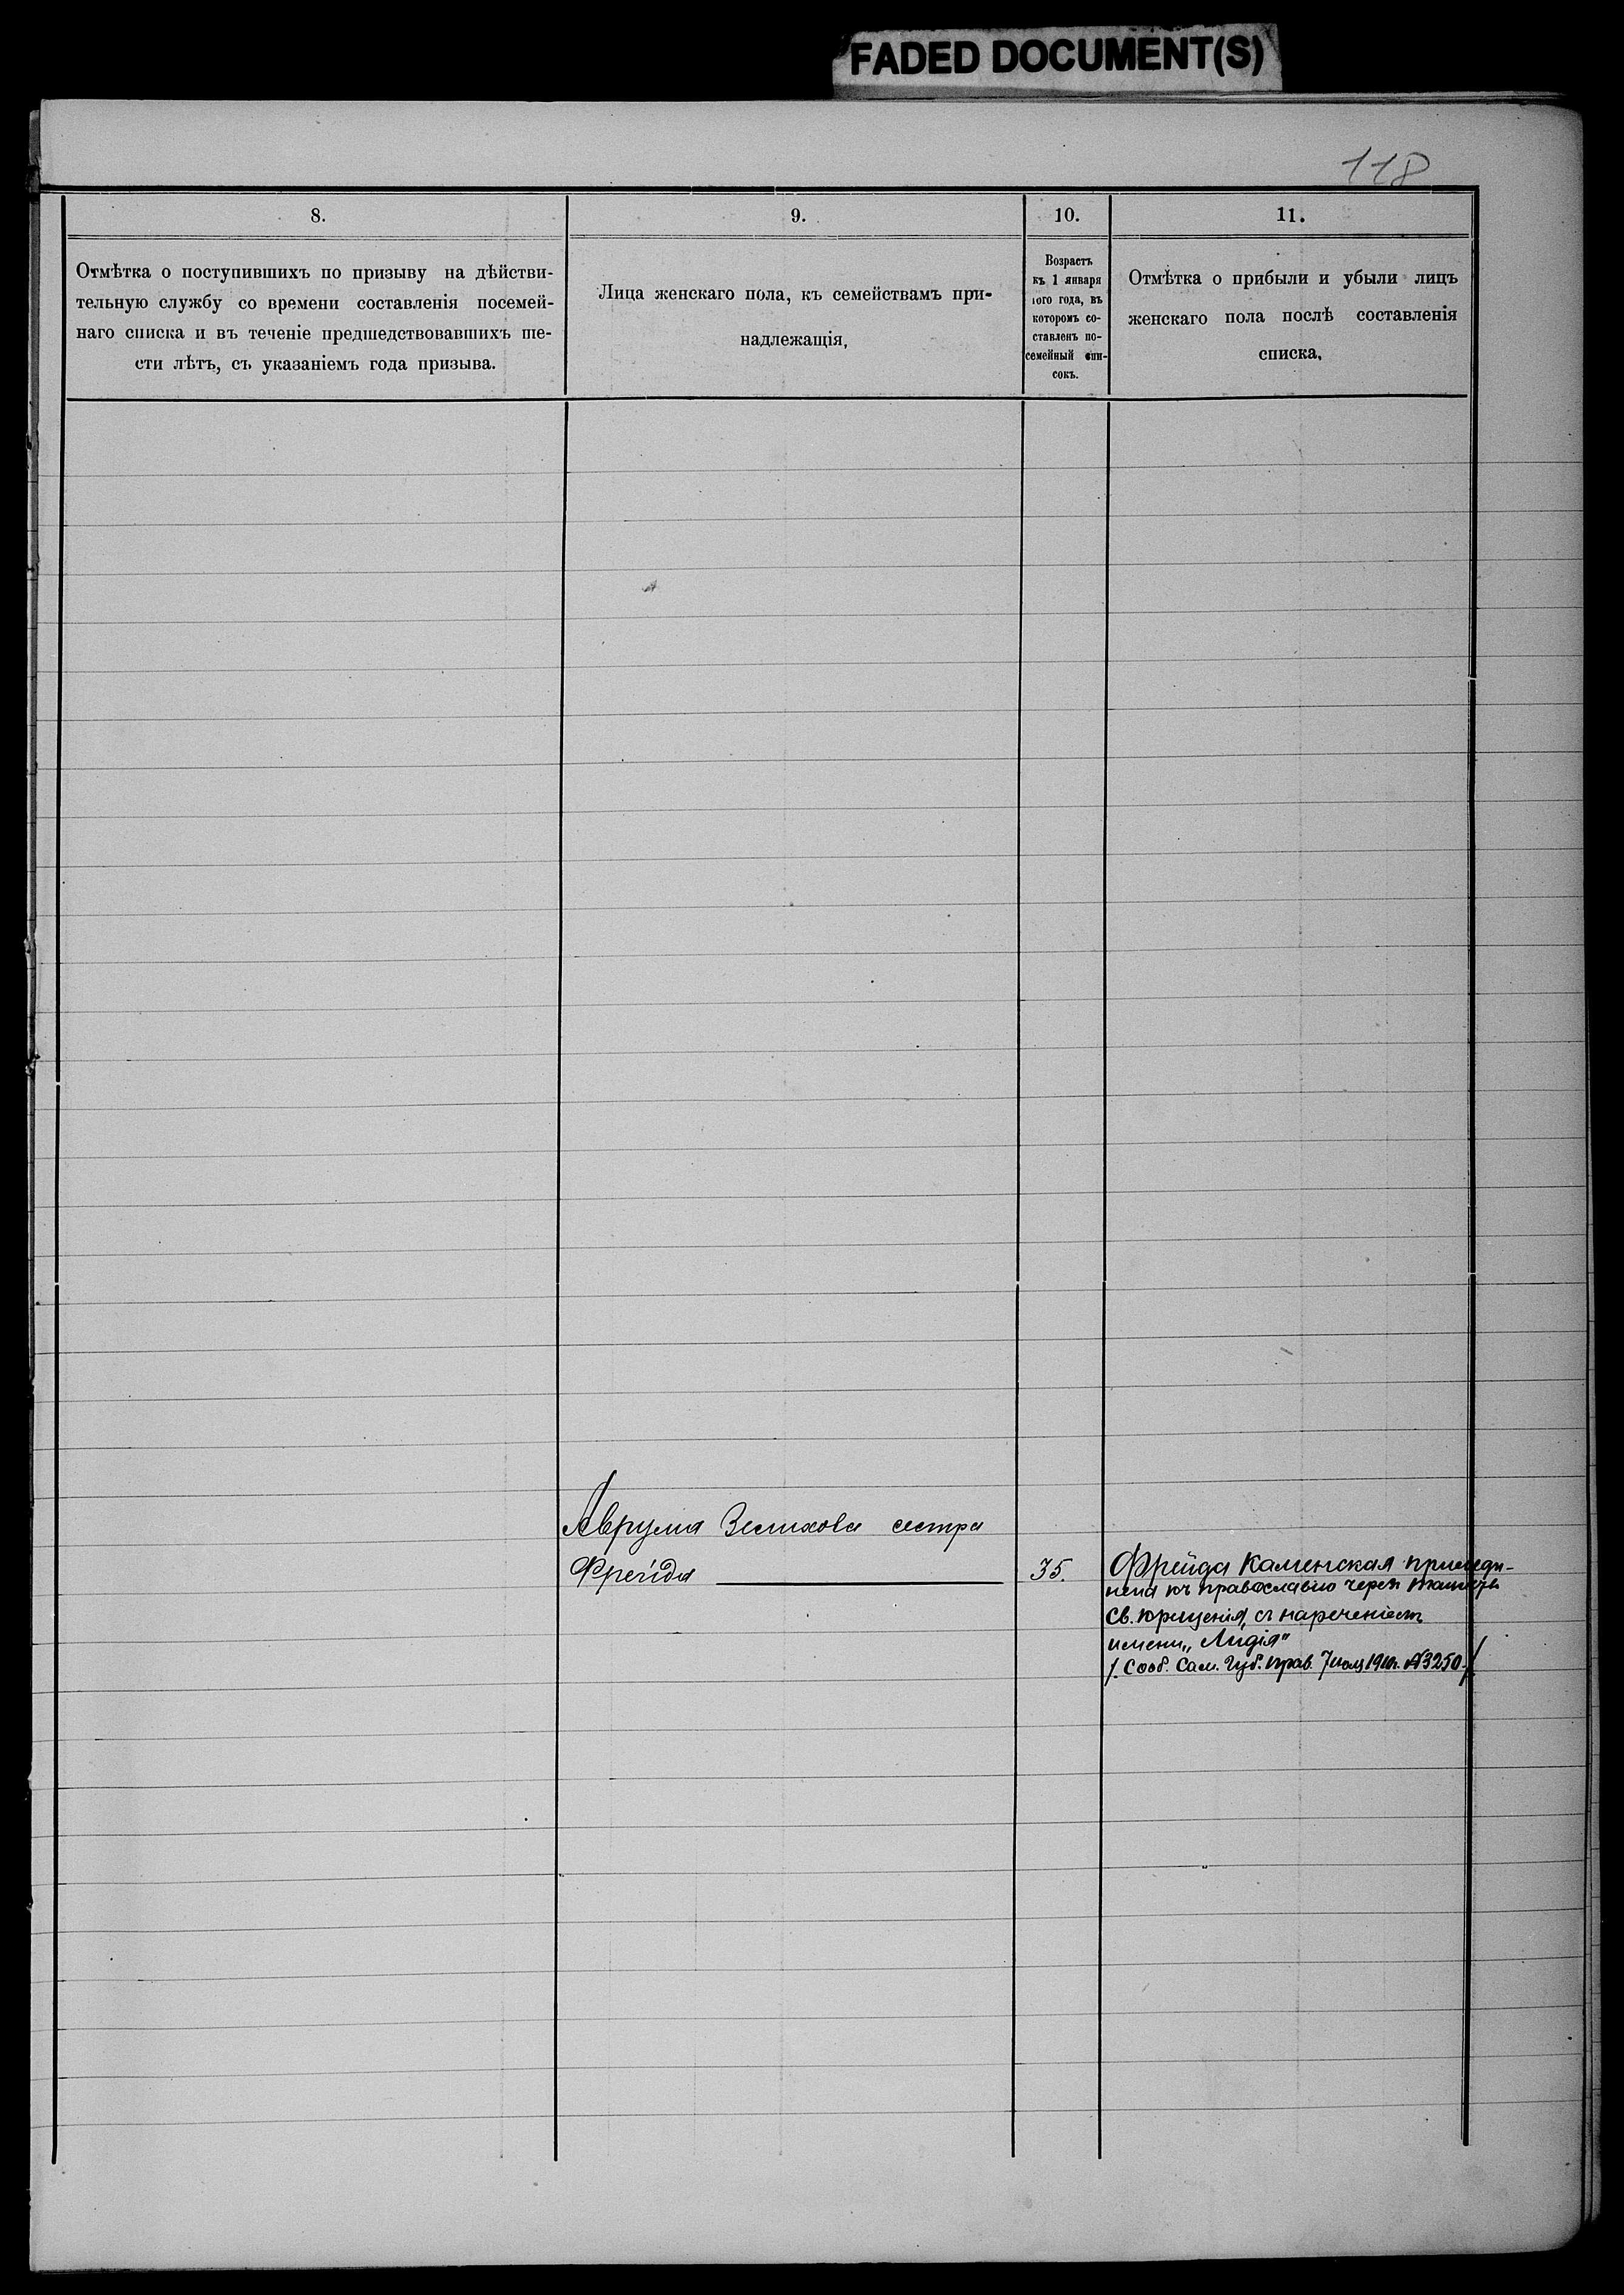 FADED DOCUMENT(S)
118
8.
Отмѣтка о поступившихъ по призыву на дѣйстви-
тельную службу со времени составленія посемей-
наго списка и въ теченіе предшедствовавшихъ ше-
сти лѣтъ, съ указаніемъ года призыва.
9.
Лица женскаго пола, къ семействамъ при-
надлежащія,
10.
Возрастъ
къ 1 января
того года, въ
которомъ со-
ставленъ по-
семейный спи-
сокъ.
11.
Отмѣтка о прибыли и убыли лицъ
женскаго пола послѣ составленія
списка.
Аврума Зелихова сестра
Фреида
35.
Фрейда Каменская присоеди-
нена къ православію черезъ таинство
Св. крещенія, съ нареченіемъ
имени „Лидія"
/. Сооб. Сам. Губ. Прав. 7 1910г. №3250./